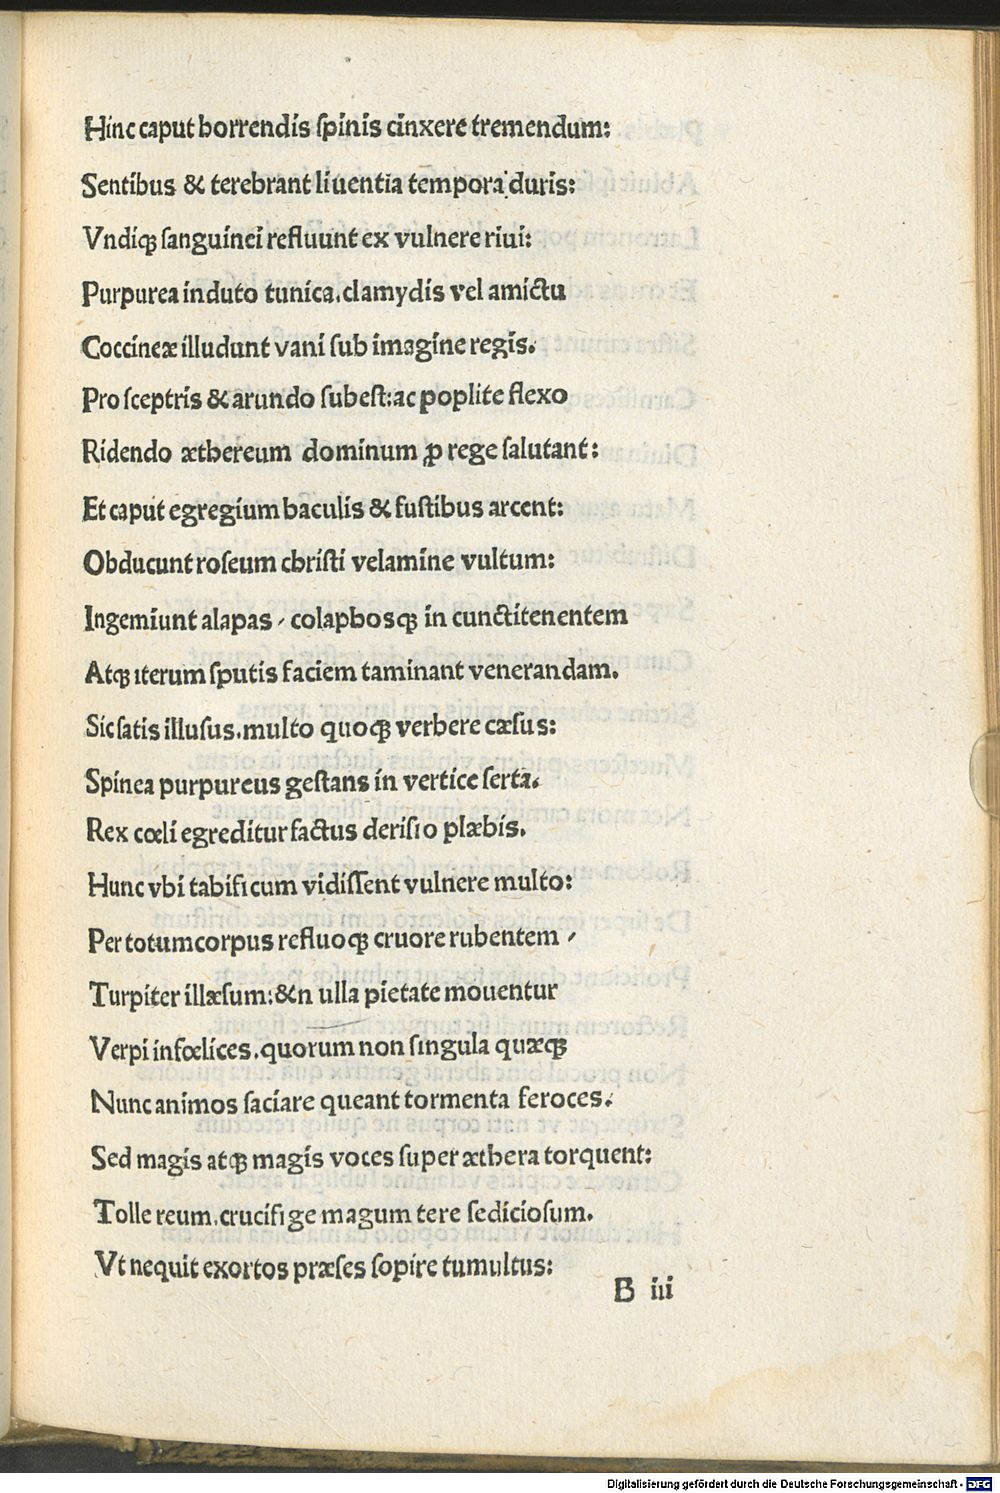 Hinc caput horrendis ſpinis cinxere tremendum:
Sentibus & terebrant liuentia tempora duris:
Vndiqꝫ ſanguinei refluunt ex vulnere riui:
Purpurea induto tunica.clamydis vel amictu
Coccineæ illudunt vani ſub imagine regis.
Pro ſceptris & arundo ſubeſt:ac poplite flexo
Ridendo æthereum dominum ꝓ rege ſalutant:
Et caput egregium baculis & fuſtibus arcent:
Obducunt roſeum chriſti velamine vultum:
Ingemiunt alapas / colaphosqꝫ in cunctitenentem
Atqꝫ iterum ſputis faciem taminant venerandam.
Sic ſatis illuſus.multo quoqꝫ verbere cæſus:
Spinea purpureus geſtans in vertice ſerta.
Rex cœli egreditur factus deriſio plæbis.
Hunc vbi tabificum vidiſſent vulnere multo:
Per totum corpus refluoqꝫ cruore rubentem /
Turpiter illæſum:&n ulla pietate mouentur
Verpi infœlices.quorum non ſingula quæqꝫ
Nunc animos ſaciare queant tormenta feroces.
Sed magis atqꝫ magis voces ſuper æthera torquent:
Tolle reum.crucifige magum tere ſedicioſum.
Vt nequit exortos præſes ſopire tumultus:
B iii
Digitalisierung gefördert durch die Deutsche Forschungsgemeinschaft - DFG